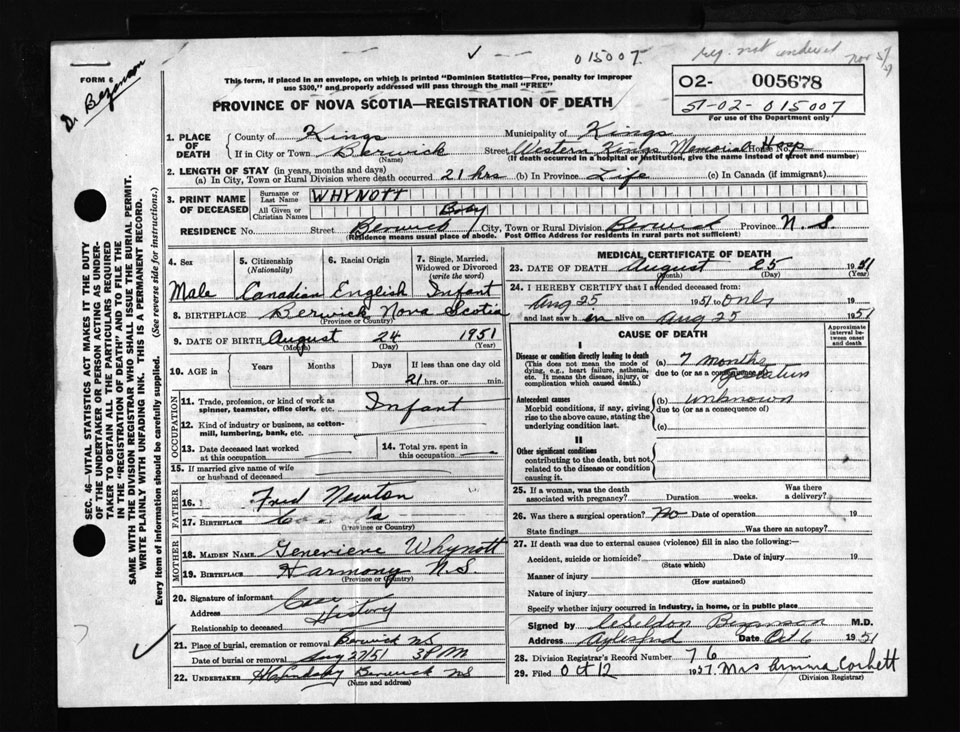 015007.
reg. not indexed
Nov 5/
FORM 6
Dr Bezanson
This form, if placed in an envelope, on which is printed "Dominion Statistics—Free, penalty for improper
use $300," and properly addressed will pass through the mail "FREE"
PROVINCE OF NOVA SCOTIA—REGISTRATION OF DEATH
02- 005678
51-02-015007
For use of the Department only
SEC. 46—VITAL STATISTICS ACT MAKES IT THE DUTY
OF THE UNDERTAKER OR PERSON ACTING AS UNDER-
TAKER TO OBTAIN ALL THE PARTICULARS REQUIRED
IN THE "REGISTRATION OF DEATH" AND TO FILE THE
SAME WITH THE DIVISION REGISTRAR WHO SHALL ISSUE THE BURIAL PERMIT.
WRITE PLAINLY WITH UNFADING INK. THIS IS A PERMANENT RECORD.
Every item of information should be carefully supplied. (See reverse side for instructions.)
1. PLACE OF DEATH County of Kings Municipality of Kings
If in City or Town Berwick Street Western Kings Memorial Hosp
(Name) (If death occurred in a hospital or institution, give the name instead of street and number)
2. LENGTH OF STAY (in years, months and days)
(a) In City, Town or Rural Division where death occurred 21 hrs (b) In Province Life (c) In Canada (if immigrant)
3. PRINT NAME OF DECEASED Surname or Last Name WHYNOTT
All Given or Christian Names Baby
RESIDENCE No. Street Berwick City, Town or Rural Division Berwick Province N.S.
(Residence means usual place of abode. Post Office Address for residents in rural parts not sufficient)
4. Sex 5. Citizenship (Nationality) 6. Racial Origin 7. Single, Married, Widowed or Divorced (write the word)
Male Canadian English Infant
8. BIRTHPLACE Berwick Nova Scotia
(Province or Country)
9. DATE OF BIRTH August 24 1951
(Month) (Day) (Year)
10. AGE in Years Months Days If less than one day old
21 hrs. or min.
OCCUPATION
11. Trade, profession, or kind of work as
spinner, teamster, office clerk, etc. Infant
12. Kind of industry or business, as cotton-
mill, lumbering, bank, etc.
13. Date deceased last worked at this occupation 14. Total yrs. spent in this occupation
15. If married give name of wife
or husband of deceased
FATHER
16. Fred Newton
17. Birthplace
(Province or Country)
MOTHER
18. MAIDEN NAME Genevieve Whynott
19. BIRTHPLACE Harmony N.S.
(Province or Country)
20. Signature of informant Case
Address History
Relationship to deceased
21. Place of burial, cremation or removal Berwick NS
Date of burial or removal Aug 27/51 3 PM
22. UNDERTAKER Berwick NS
(Name and address)
MEDICAL CERTIFICATE OF DEATH
23. DATE OF DEATH August 25 1951
(Month) (Day) (Year)
24. I HEREBY CERTIFY that I attended deceased from:
Aug 25 1951 to only 19
and last saw h im alive on Aug 25 1951
CAUSE OF DEATH
Approximate
interval be-
tween onset
and death
I
Disease or condition directly leading to death
(This does not mean the mode of
dying, e.g., heart failure, asthenia,
etc. It means the disease, injury, or
complication which caused death.)
(a) 7 months
due to (or as a consequence of)
Antecedent causes
Morbid conditions, if any, giving
rise to the above cause, stating the
underlying condition last.
(b) unknown
due to (or as a consequence of)
(c)
II
Other significant conditions
contributing to the death, but not
related to the disease or condition
causing it.
25. If a woman, was the death
associated with pregnancy? Duration weeks. Was there a delivery?
26. Was there a surgical operation? No Date of operation 19
State findings Was there an autopsy?
27. If death was due to external causes (violence) fill in also the following:—
Accident, suicide or homicide? Date of injury 19
(State which)
Manner of injury
(How sustained)
Nature of injury
Specify whether injury occurred in industry, in home, or in public place
Signed by Bezanson M.D.
Address Aylesford Date Oct 6 1951
28. Division Registrar's Record Number 76
29. Filed Oct 12 1951. Mrs Corbett
(Division Registrar)